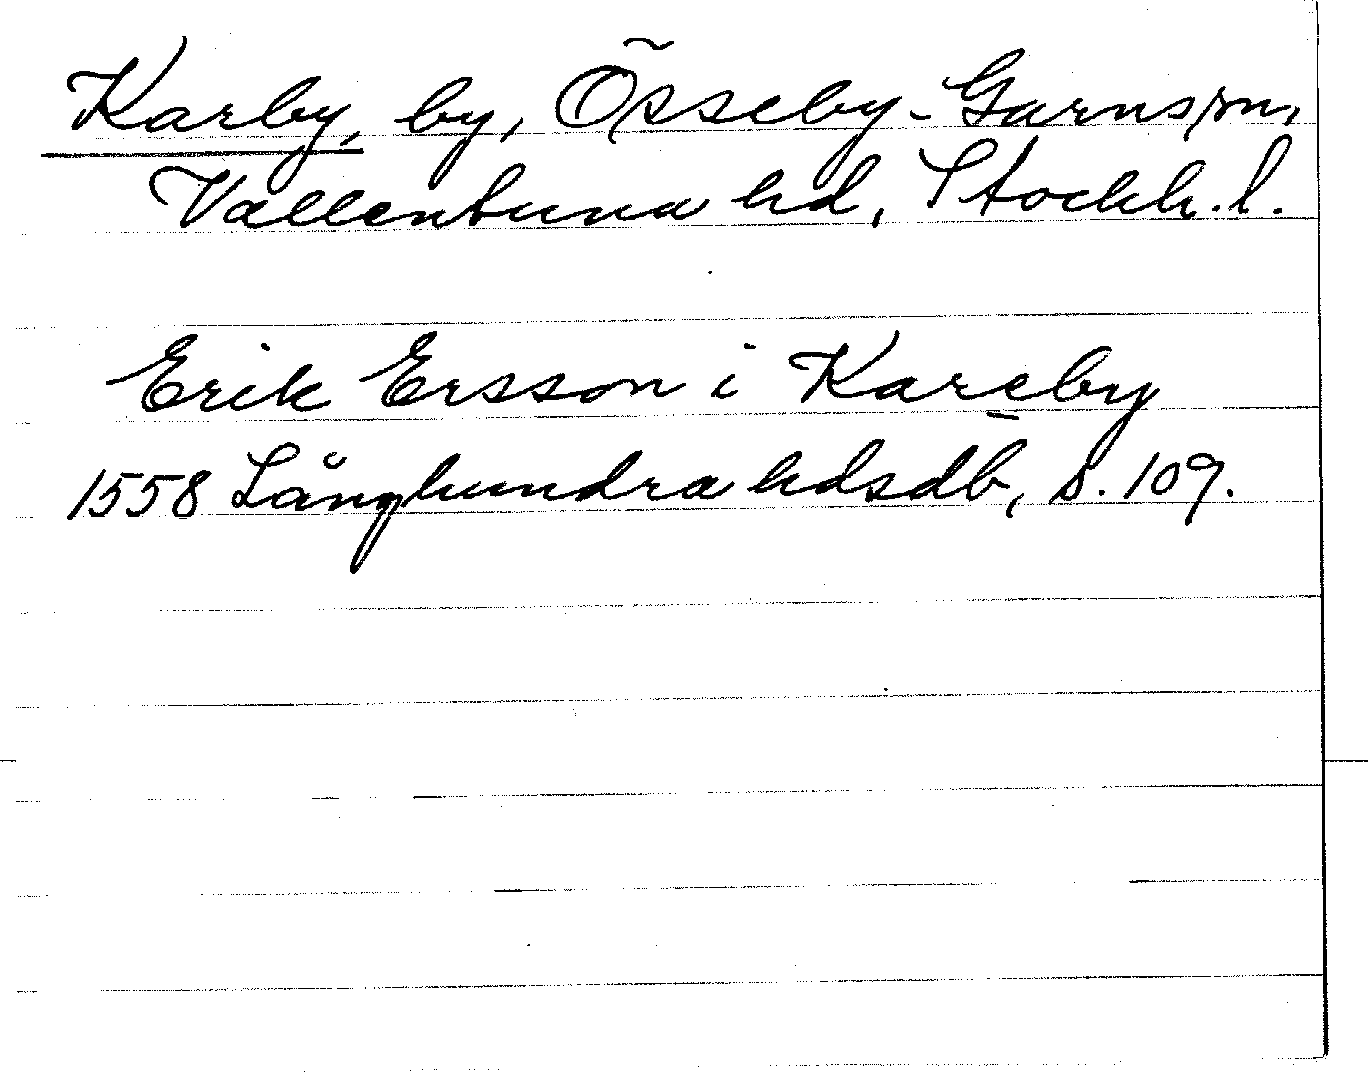 Karby, by, Össeby-Garns sn,
Vallentuna hd, Stockh. l.
Erik Ersson i Kareby
1558 Långhundra hdsdb, s. 109.